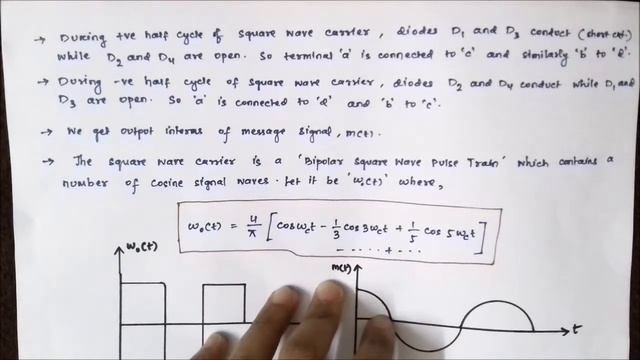 → During +ve half cycle of square wave carrier, diodes D₁ and D₃ conduct (short ckt.)
while D₂ and D₄ are open. So terminal 'a' is connected to 'c' and similarly 'b' to 'd'.
→ During -ve half cycle of square wave carrier, diodes D₂ and D₄ conduct while D₁ and
D₃ are open. So 'a' is connected to 'd' and 'b' to 'c'.
→ We get output interms of message signal, m(t).
→ The square wave carrier is a 'Bipolar Square Wave Pulse Train' which contains a
number of cosine signal waves. Let it be 'w₀(t)' where,
w₀(t) = 4/π [cosω_ct - 1/3 cos3ω_ct + 1/5 cos 5ω_ct
- ..... + ...]
w₀(t)
m(t)
t